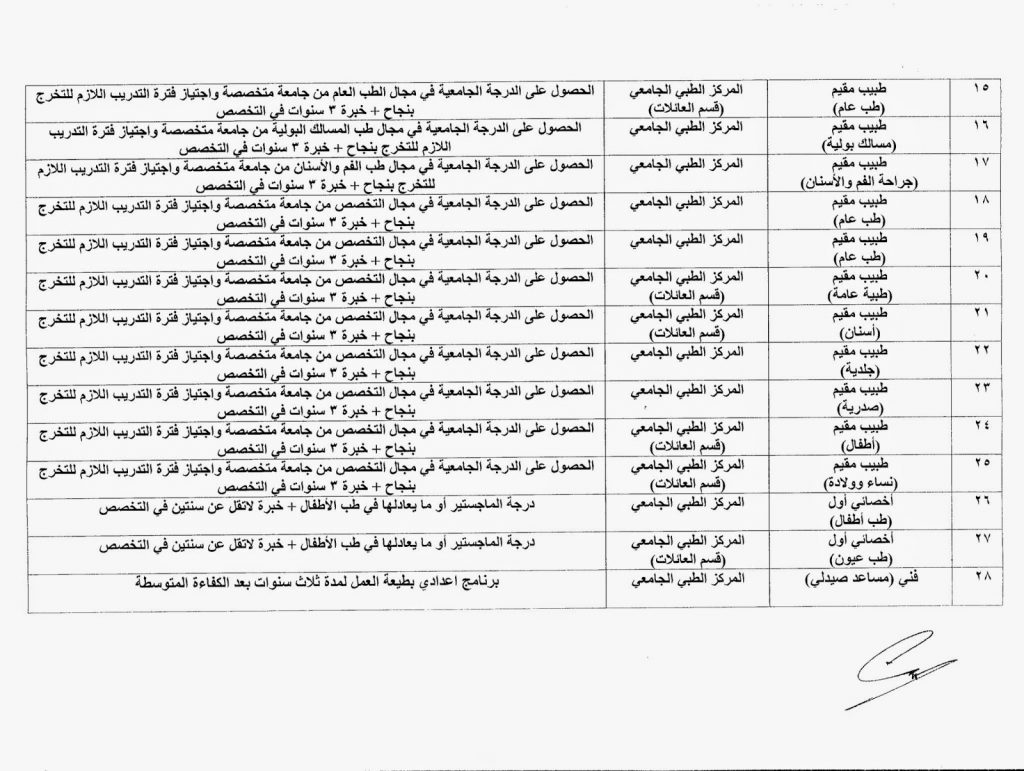 ١٥ طبيب مقيم المركز الطبي الجامعي الحصول على الدرجة الجامعية في مجال الطب العام من جامعة متخصصة واجتياز فترة التدريب اللازم للتخرج
(طب عام) (قسم العائلات) بنجاح + خبرة ٣ سنوات في التخصص
١٦ طبيب مقيم المركز الطبي الجامعي الحصول على الدرجة الجامعية في مجال طب المسالك البولية من جامعة متخصصة واجتياز فترة التدريب
(مسالك بولية) اللازم للتخرج بنجاح + خبرة ٣ سنوات في التخصص
١٧ طبيب مقيم المركز الطبي الجامعي الحصول على الدرجة الجامعية في مجال طب الفم والأسنان من جامعة متخصصة واجتياز فترة التدريب اللازم
(جراحة الفم والأسنان) للتخرج بنجاح + خبرة ٣ سنوات في التخصص
١٨ طبيب مقيم المركز الطبي الجامعي الحصول على الدرجة الجامعية في مجال التخصص من جامعة متخصصة واجتياز فترة التدريب اللازم للتخرج
(طب عام) بنجاح + خبرة ٣ سنوات في التخصص
١٩ طبيب مقيم المركز الطبي الجامعي الحصول على الدرجة الجامعية في مجال التخصص من جامعة متخصصة واجتياز فترة التدريب اللازم للتخرج
(طب عام) بنجاح + خبرة ٣ سنوات في التخصص
٢٠ طبيب مقيم المركز الطبي الجامعي الحصول على الدرجة الجامعية في مجال التخصص من جامعة متخصصة واجتياز فترة التدريب اللازم للتخرج
(طبية عامة) (قسم العائلات) بنجاح + خبرة ٣ سنوات في التخصص
٢١ طبيب مقيم المركز الطبي الجامعي الحصول على الدرجة الجامعية في مجال التخصص من جامعة متخصصة واجتياز فترة التدريب اللازم للتخرج
(أسنان) (قسم العائلات) بنجاح + خبرة ٣ سنوات في التخصص
٢٢ طبيب مقيم المركز الطبي الجامعي الحصول على الدرجة الجامعية في مجال التخصص من جامعة متخصصة واجتياز فترة التدريب اللازم للتخرج
(جلدية) بنجاح + خبرة ٣ سنوات في التخصص
٢٣ طبيب مقيم المركز الطبي الجامعي الحصول على الدرجة الجامعية في مجال التخصص من جامعة متخصصة واجتياز فترة التدريب اللازم للتخرج
(صدرية) بنجاح + خبرة ٣ سنوات في التخصص
٢٤ طبيب مقيم المركز الطبي الجامعي الحصول على الدرجة الجامعية في مجال التخصص من جامعة متخصصة واجتياز فترة التدريب اللازم للتخرج
(أطفال) (قسم العائلات) بنجاح + خبرة ٣ سنوات في التخصص
٢٥ طبيب مقيم المركز الطبي الجامعي الحصول على الدرجة الجامعية في مجال التخصص من جامعة متخصصة واجتياز فترة التدريب اللازم للتخرج
(نساء وولادة) (قسم العائلات) بنجاح + خبرة ٣ سنوات في التخصص
٢٦ أخصائي أول المركز الطبي الجامعي درجة الماجستير أو ما يعادلها في طب الأطفال + خبرة لاتقل عن سنتين في التخصص
(طب أطفال)
٢٧ أخصائي أول المركز الطبي الجامعي درجة الماجستير أو ما يعادلها في طب الأطفال + خبرة لاتقل عن سنتين في التخصص
(طب عيون) (قسم العائلات)
٢٨ فني (مساعد صيدلي) المركز الطبي الجامعي برنامج اعدادي بطيعة العمل لمدة ثلاث سنوات بعد الكفاءة المتوسطة